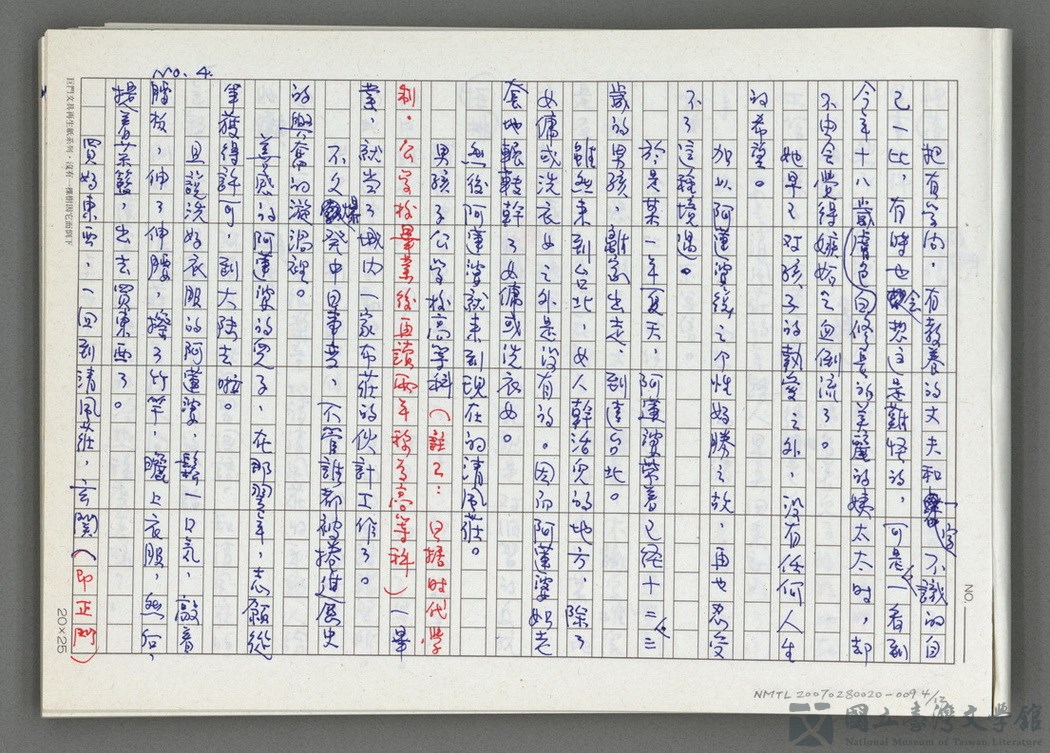 No. 4.
把有学问，有教養的丈夫和一字不識的自
己一比，有時也会想这是難怪的，可是一看到
今年十八歲膚色白修長的美麗的姨太太時，却
不由会覺得嫉妬之血倒流了。
她早已对孩子的執愛之外，没有任何人生
的希望。
加以阿蓮婆後之个性好勝之故，再也忍受
不了这種境遇。
於是某一年夏天，阿蓮婆帶着已經十二三
歲的男孩，離家出走，到達台北。
雖然来到台北，女人幹活兒的地方，除了
女傭或洗衣女之外是没有的。因而阿蓮婆如老
套地輾轉幹了女傭或洗衣女。
然後阿蓮婆就来到現在的清風莊。
男孩子公学校高等科（註2：日據时代学
制。公学校畢業後再讀兩年称為高等科）一畢
業，就当了城内一家布莊的伙計工作了。
不久爆發中日事变，不管誰都被捲進歷史
的興奮的漩渦裡。
善感的阿蓮婆的兒子，在那翌年，志願從
軍獲得許可，到大陸去啦。
且説洗好衣服的阿蓮婆，鬆一口气，敲着
腰板，伸了伸腰，擦了竹竿，曬上衣服，然后，
提着菜籃，出去買東西了。
買好東西，一回到清風莊，玄関（即正門）
20×25
巨門文具再生紙系列・沒有一棵樹因它而倒下
NO.
NMTL 20070280020-009 4/
國立臺灣文學館
National Museum of Taiwan Literature